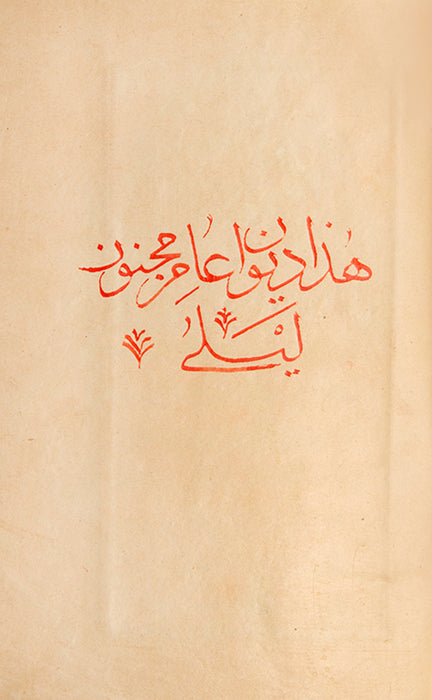 هذا ديوان عامر مجنون
ليلى